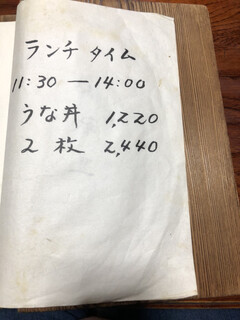 ランチタイム
11:30 — 14:00
うな丼 1,220
2 枚 2,440